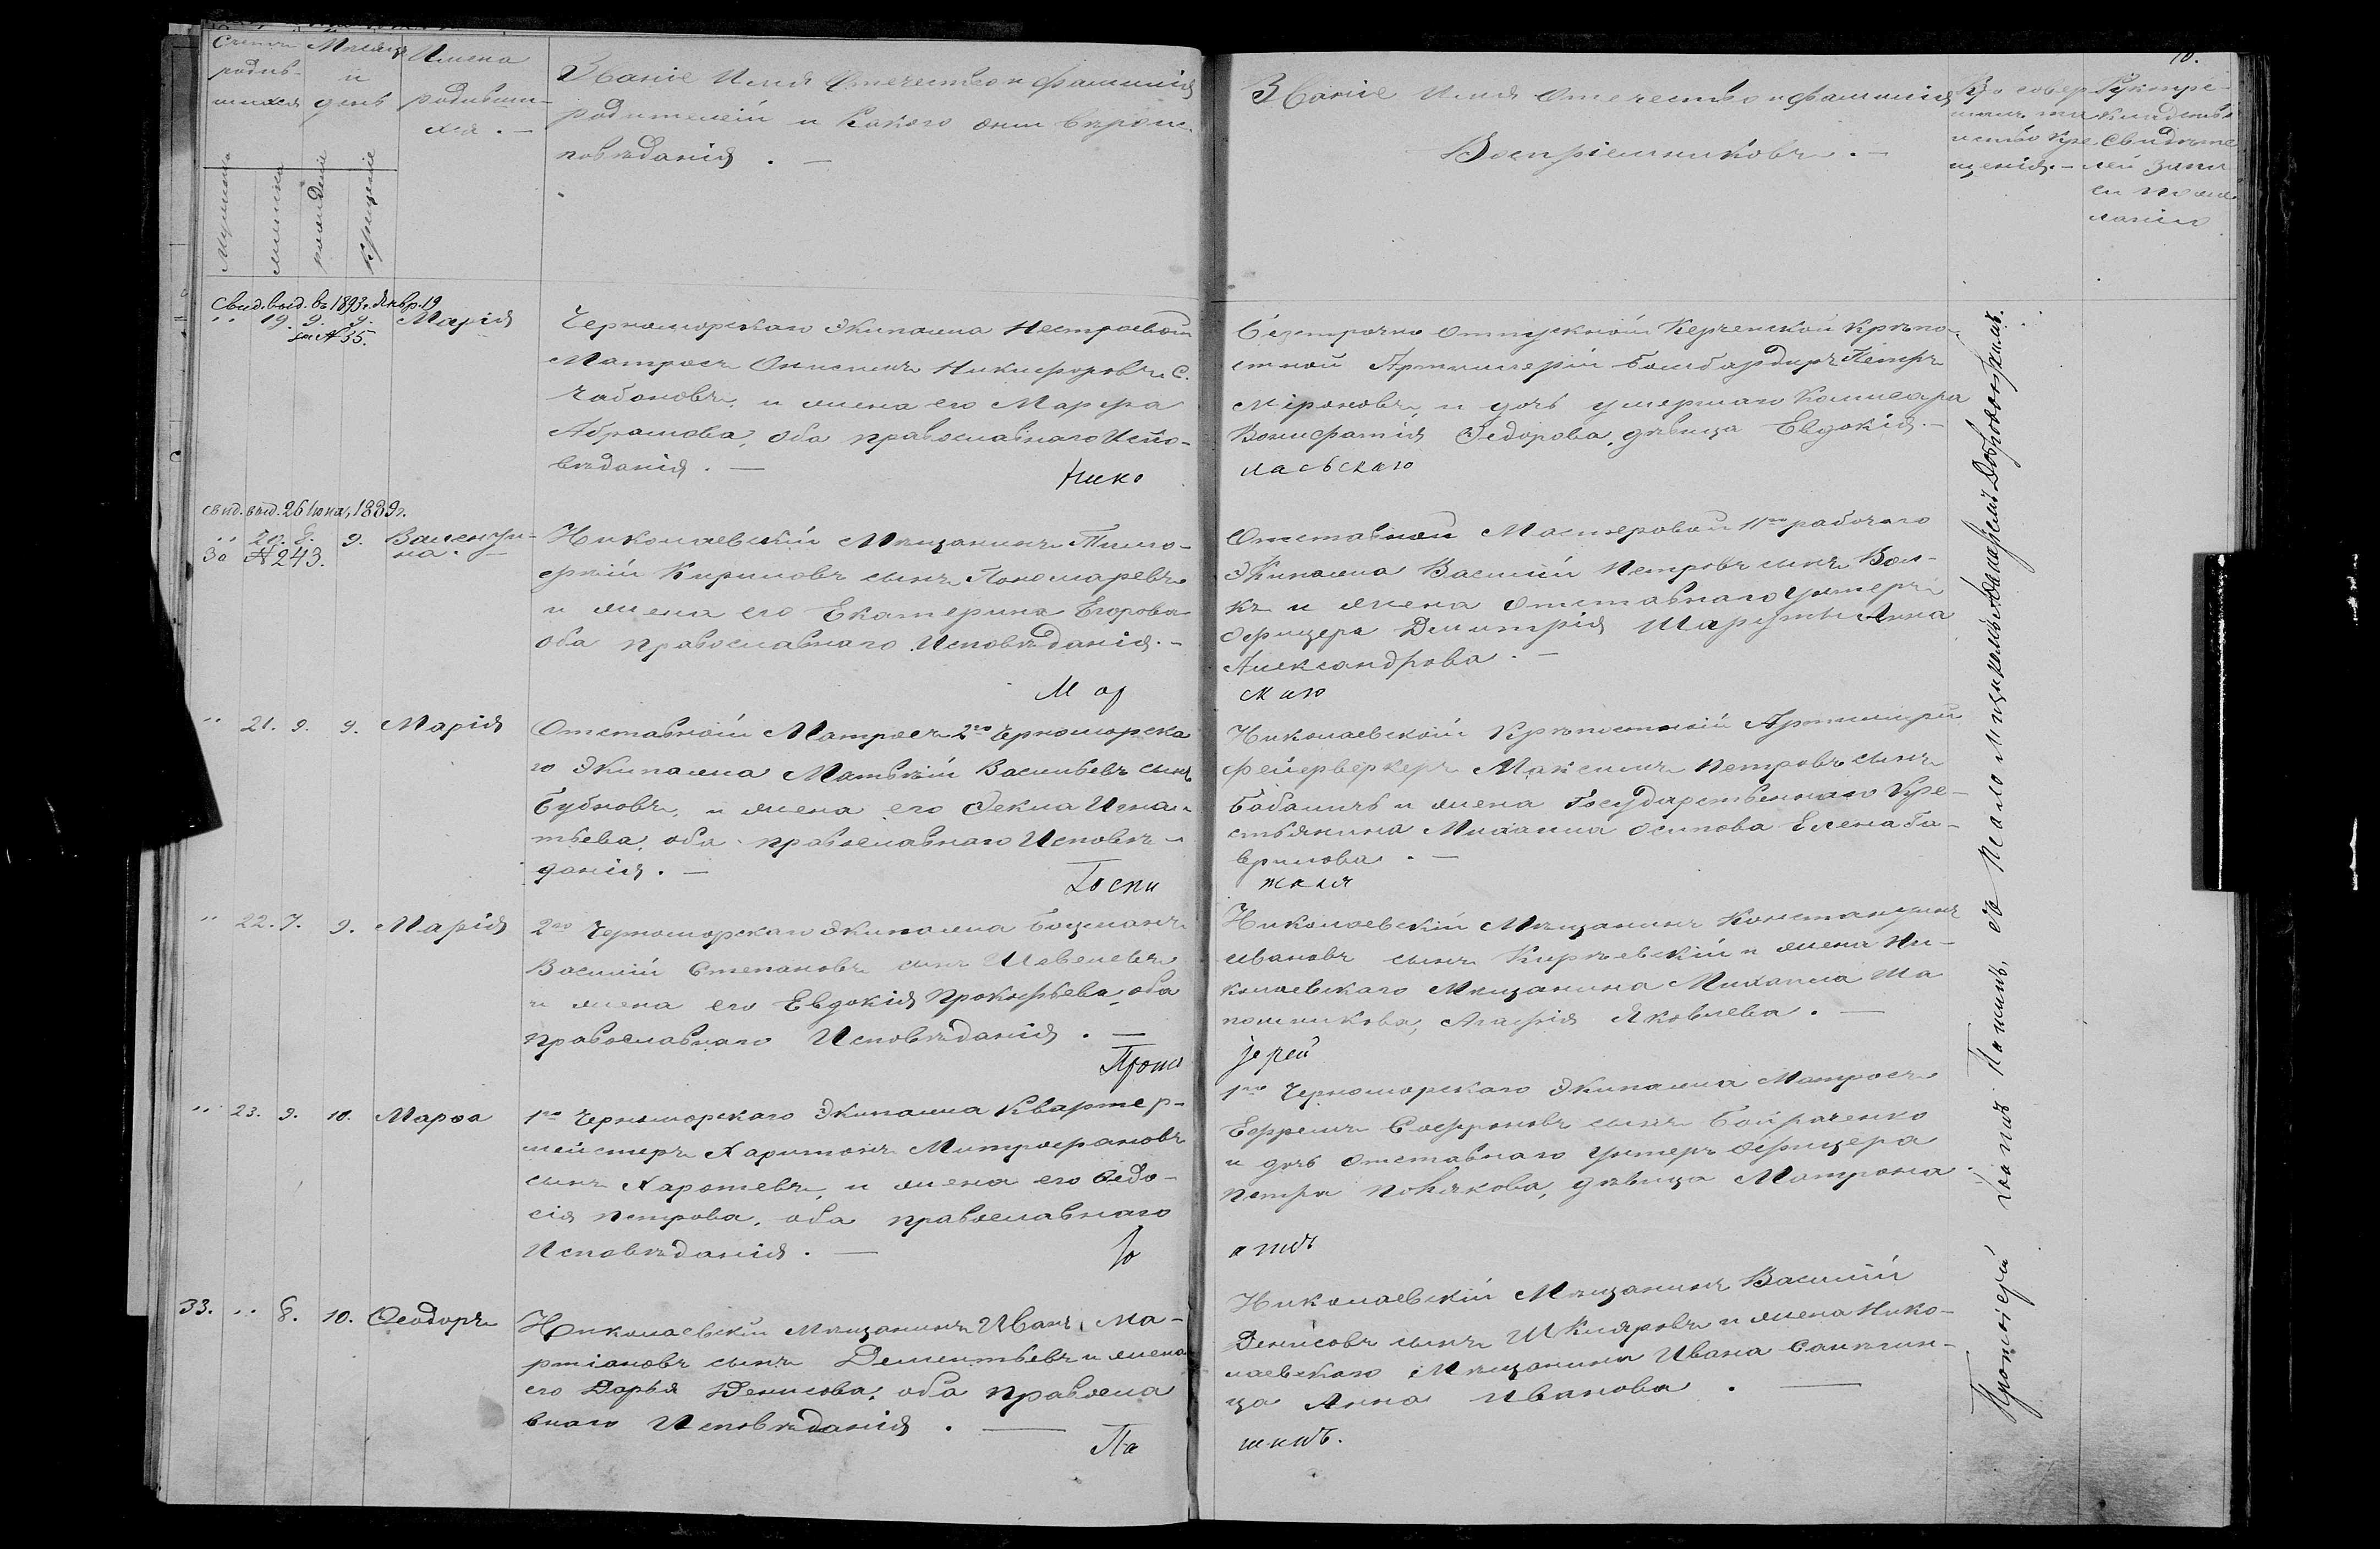 10.
Счетъ родив-
шихся
Мѣсяцъ
и
день
Имена
родивши-
хся. —
Званіе Имя Отечество и фамилія
родителей и какого они вѣроис-
повѣданія. —
Мужеска
женска
рожденіе
крещеніе
Званіе Имя Отечество и фамилія
Воспріемниковъ. —
Кто совер-
шалъ та
инство Кре
щенія. —
Рукопри-
кладство
свидѣте
лей запи
си по же
ланію
Свид. выд. въ 1893 г. Янвр. 19
за № 55.
" 19. 9. 9. Марія
Черноморскаго Экипажа нестроевой
Матросъ Онисимъ Никифоровъ С.
Чабоновъ, и жена его Марфа
Абрамова, оба православнаго Испо-
вѣданія. —
Нико
Безсрочно отпускной Керченской Крѣпо-
стной Артиллеріи бомбардиръ Петръ
Мироновъ и дочь умершаго Комисара
Вонифатія Федорова, дѣвица Евдокія. —
лаевскаго
свид. выд. 26 Іюня, 1889 г.
" 20. 8. 9. Валенти-
на. —
За № 243.
Николаевскій Мѣщанинъ Тимо-
фей Кириловъ сынъ Пономаревъ
и жена его Екатерина Егорова
оба православнаго Исповѣданія. —
Мор
Отставной Мастеровой 11го рабочаго
Экипажа Василій Петровъ сынъ Вол-
къ и жена отставнаго унтеръ
офицера Димитрія Анна
Александрова. —
скаго
" 21. 9. 9. Марія
Отставной Матросъ 2го Черноморска
го Экипажа Матвѣй Васильевъ сынъ
Бубновъ, и жена его Фекла Игна-
тьева, оба православнаго Исповѣ-
данія. —
Госпи
Николаевской Крѣпостной Артиллеріи
фейерверкеръ Максимъ Петровъ сынъ
Бабашъ и жена Государственнаго Кре-
стьянина Михаила Осипова Елена Га-
врилова. —
таля
" 22. 7. 9. Марія
2го Черноморскаго Экипажа Боцманъ
Василій Степановъ сынъ Шевелевъ
и жена его Евдокія Прокофьева, оба
православнаго Исповѣданія. —
Прото
Николаевскій Мѣщанинъ Константинъ
Ивановъ сынъ Кирѣевскій и жена Ни-
колаевскаго Мѣщанина Михаила Ша
пошникова, Агафія Яковлева. —
іерей
" 23. 9. 10. Марѳа
1го Черноморскаго Экипажа Квартер-
мейстеръ Харитонъ Митрофановъ
сынъ Харотевъ, и жена его Ѳедо-
сія Петрова, оба православнаго
Исповѣданія. —
Іо
1го Черноморскаго Экипажа Матросъ
Ефремъ Софроновъ сынъ Байраченко
и дочь отставнаго унтеръ офицера
Петра Полякова, дѣвица Матрона.
аннъ
33. " 8. 10. Ѳеодоръ
Николаевскій Мѣщанинъ Иванъ Ма-
ртіановъ сынъ Дементьевъ и жена
его Дарья Денисова, оба правосла
внаго Исповѣданія. —
Па
Николаевскій Мѣщанинъ Василій
Денисовъ сынъ Шкляровъ и жена Нико-
лаевскаго Мѣщанина Ивана
Анна Иванова. —
шинъ.
Протоіерей Іоаннъ Пашинъ, съ Псаломщикомъ